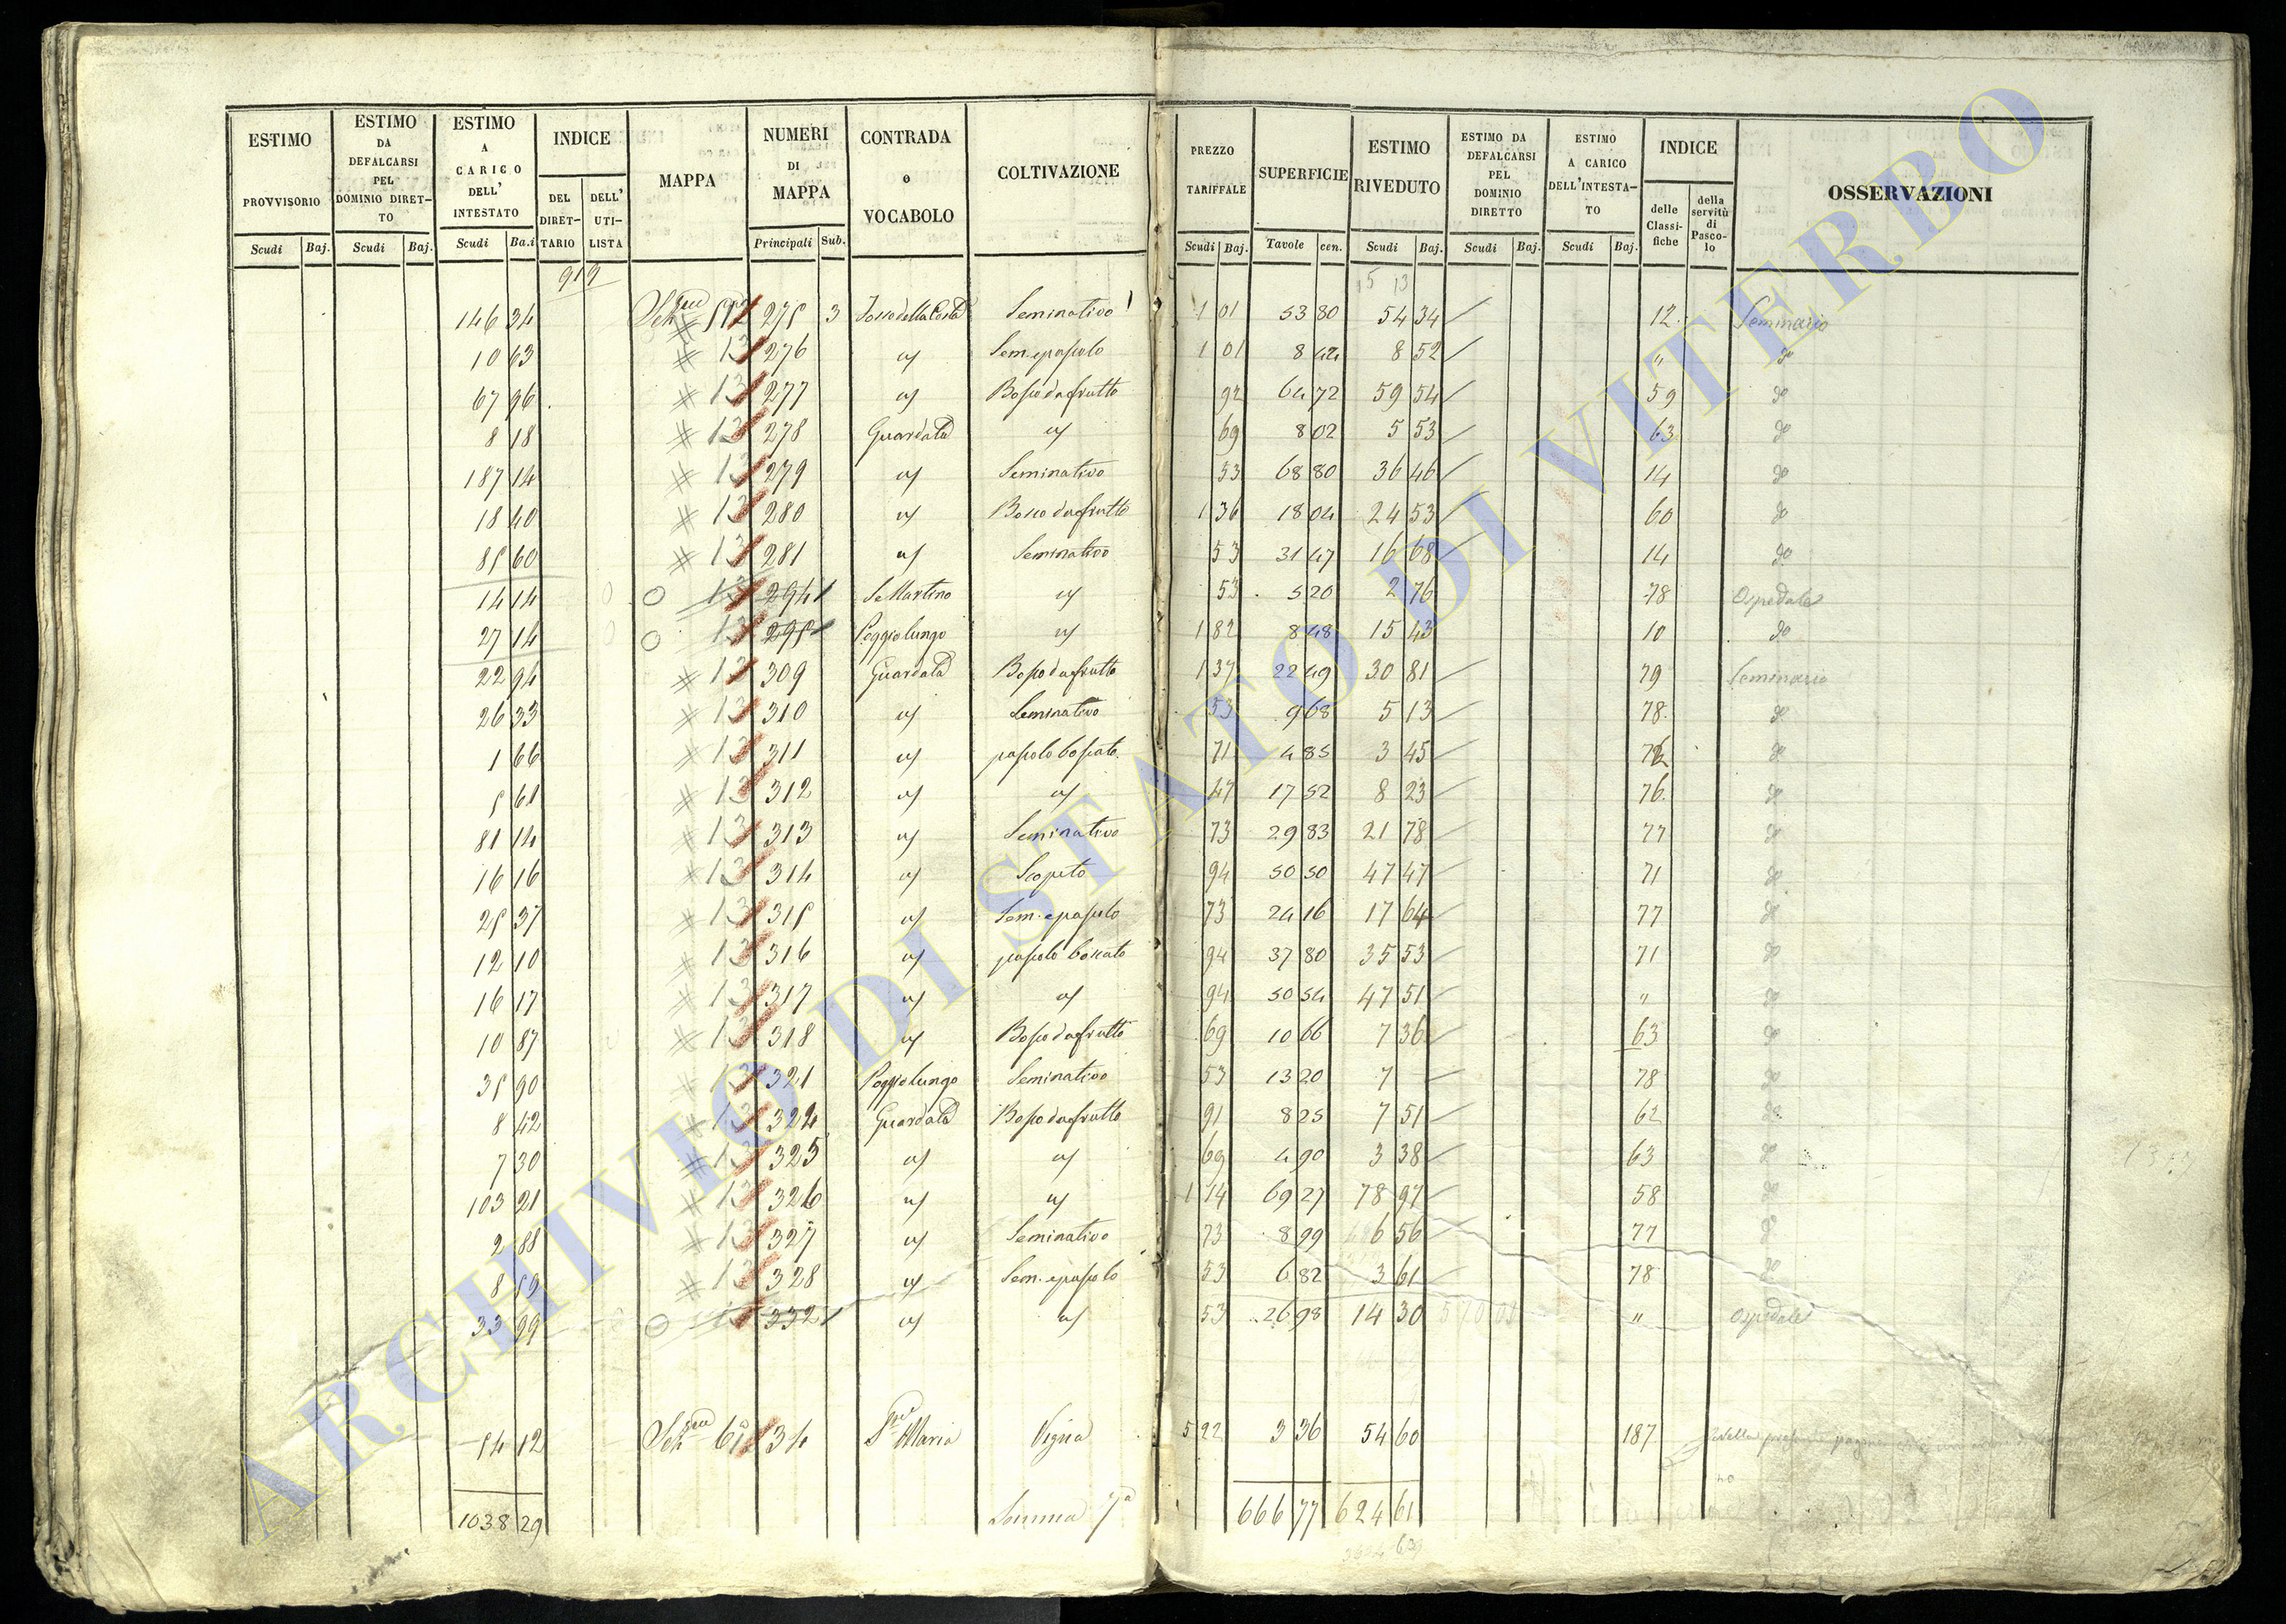 ESTIMO PROVVISORIO Scudi Baj.
ESTIMO DA DEFALCARSI PEL DOMINIO DIRETTO Scudi Baj.
ESTIMO A CARICO DELL' INTESTATO Scudi Ba.i
INDICE DEL DIRETTARIO DELL' UTILISTA
MAPPA
NUMERI DI MAPPA Principali Sub.
CONTRADA o VOCABOLO
COLTIVAZIONE
PREZZO TARIFFALE Scudi Baj.
SUPERFICIE Tavole cen.
ESTIMO RIVEDUTO Scudi Baj.
ESTIMO DA DEFALCARSI PEL DOMINIO DIRETTO Scudi Baj.
ESTIMO A CARICO DELL'INTESTATO Scudi Baj.
INDICE delle Classifiche della servitù di Pascolo
OSSERVAZIONI
919
146 34 275 3 Seminativo 1 01 53 80 54 34 12. Seminario
10 63 # 13 276 " Sem. e pascolo 1 01 8 44 8 52 " do
67 96 # 13 277 " Bosco da frutto 92 64 72 59 54 59 do
8 18 # 13 278 Guardata " 69 8 02 5 53 63 do
187 14 # 13 279 " Seminativo 53 68 80 36 46 14 do
18 40 # 13 280 " Bosco da frutto 1 36 18 04 24 53 60 do
85 60 # 13 281 " Seminativo 53 31 47 16 68 14 do
14 14 O 13 294 S. Martino " 53 5 20 2 76 78 Ospedale
27 14 O 13 295 Poggio lungo " 1 82 8 48 15 43 10 do
22 94 # 13 309 Guardata Bosco da frutto 1 37 22 49 30 81 79 Seminario
26 33 # 13 310 " Seminativo 53 9 68 5 13 78. do
1 66 # 13 311 " pascolo boscato 71 4 85 3 45 do
5 61 # 13 312 " " 47 17 52 8 23 76. do
81 14 # 13 313 " Seminativo 73 29 83 21 78 77 do
16 16 # 13 314 " Scopeto 94 50 50 47 47 71 do
25 37 # 13 315 " Sem. e pascolo 73 24 16 17 64 77 do
12 10 # 13 316 " pascolo boscato 94 37 80 35 53 71 do
16 17 # 13 317 " " 94 50 54 47 51 " do
10 87 # 13 318 " Bosco da frutto 69 10 66 7 36 63 do
35 90 # 13 321 Poggio lungo Seminativo 53 13 20 7 — 78 do
8 42 # 13 324 Guardata Bosco da frutto 91 8 25 7 51 62 do
7 30 # 13 325 " " 69 4 90 3 38 63 do
103 21 # 13 326 " " 1 14 69 27 78 97 58 do
2 88 # 13 327 " Seminativo 73 8 99 6 56 77 do
8 59 # 13 328 " Sem. e pascolo 53 6 82 3 61 78 do
33 99 O 13 332 " " 53 26 98 14 30 " Ospedale
54 12 34 S. Maria Vigna 5 22 3 36 54 60 187
1038 29 Somma 7a 666 77 624 61
ARCHIVIO DI STATO DI VITERBO